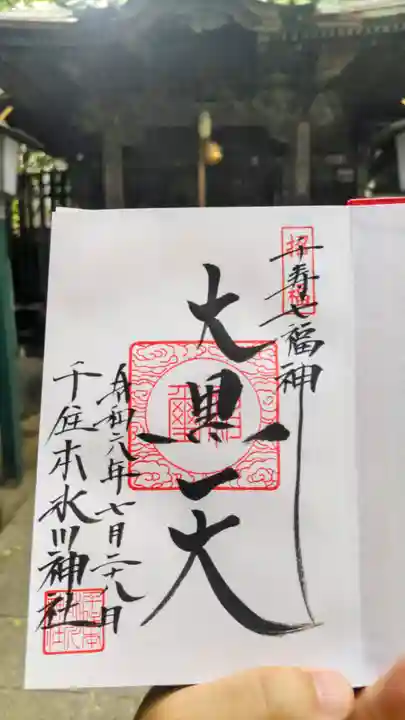 千寿七福神
大黒天
令和六年七月二十八日
千住本氷川神社